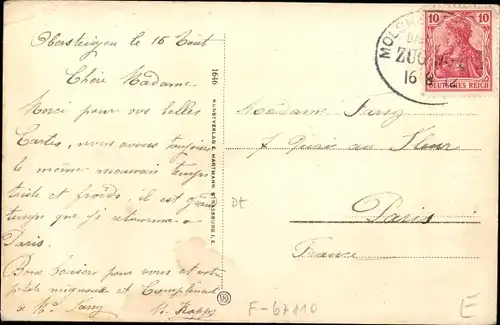 Obersteigen le 16 Août
Chère Madame
Merci pour vos belles
Cartes, nous avons toujours
le même mauvais temps
triste et froids, il est grand
temps que je retourne a
Paris.
Bons baisers pour vous et votre
petite mignonne et
B. Kapp
1646
KUNSTVERLAG E. HARTMANN, STRASSBURG I. E.
MOLSH
ZUG
16 8 12
10 10
DEUTSCHES REICH
Madame
7 Quai au Fleur
Paris
France
DE
F-67110
E